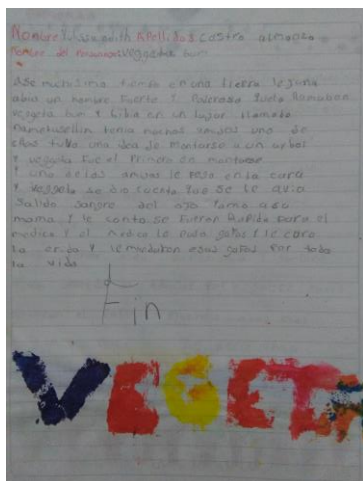 Nombre edith Apellidos Castro almanza
Nombre del personaje vegeta
Ase muchisimo tiempo en una tierra lejana
abia un hombre fuerte y Poderoso
vegeta y bibia en un lugar llamado
tenia muchos amigos uno de
ellos tubo una idea de montarse a un arbol
y vegeta fue el Primero en montarse
y uno de los amigos le Pego en la cara
y veggeta se dio cuenta que se le avia
salido sangre del ojo a su
mama y le conto se fueron Rapido para el
medico y el medico le puso gafas y le curo
la erida y le esas gafas Por toda
la vida
Fin
VEGETA